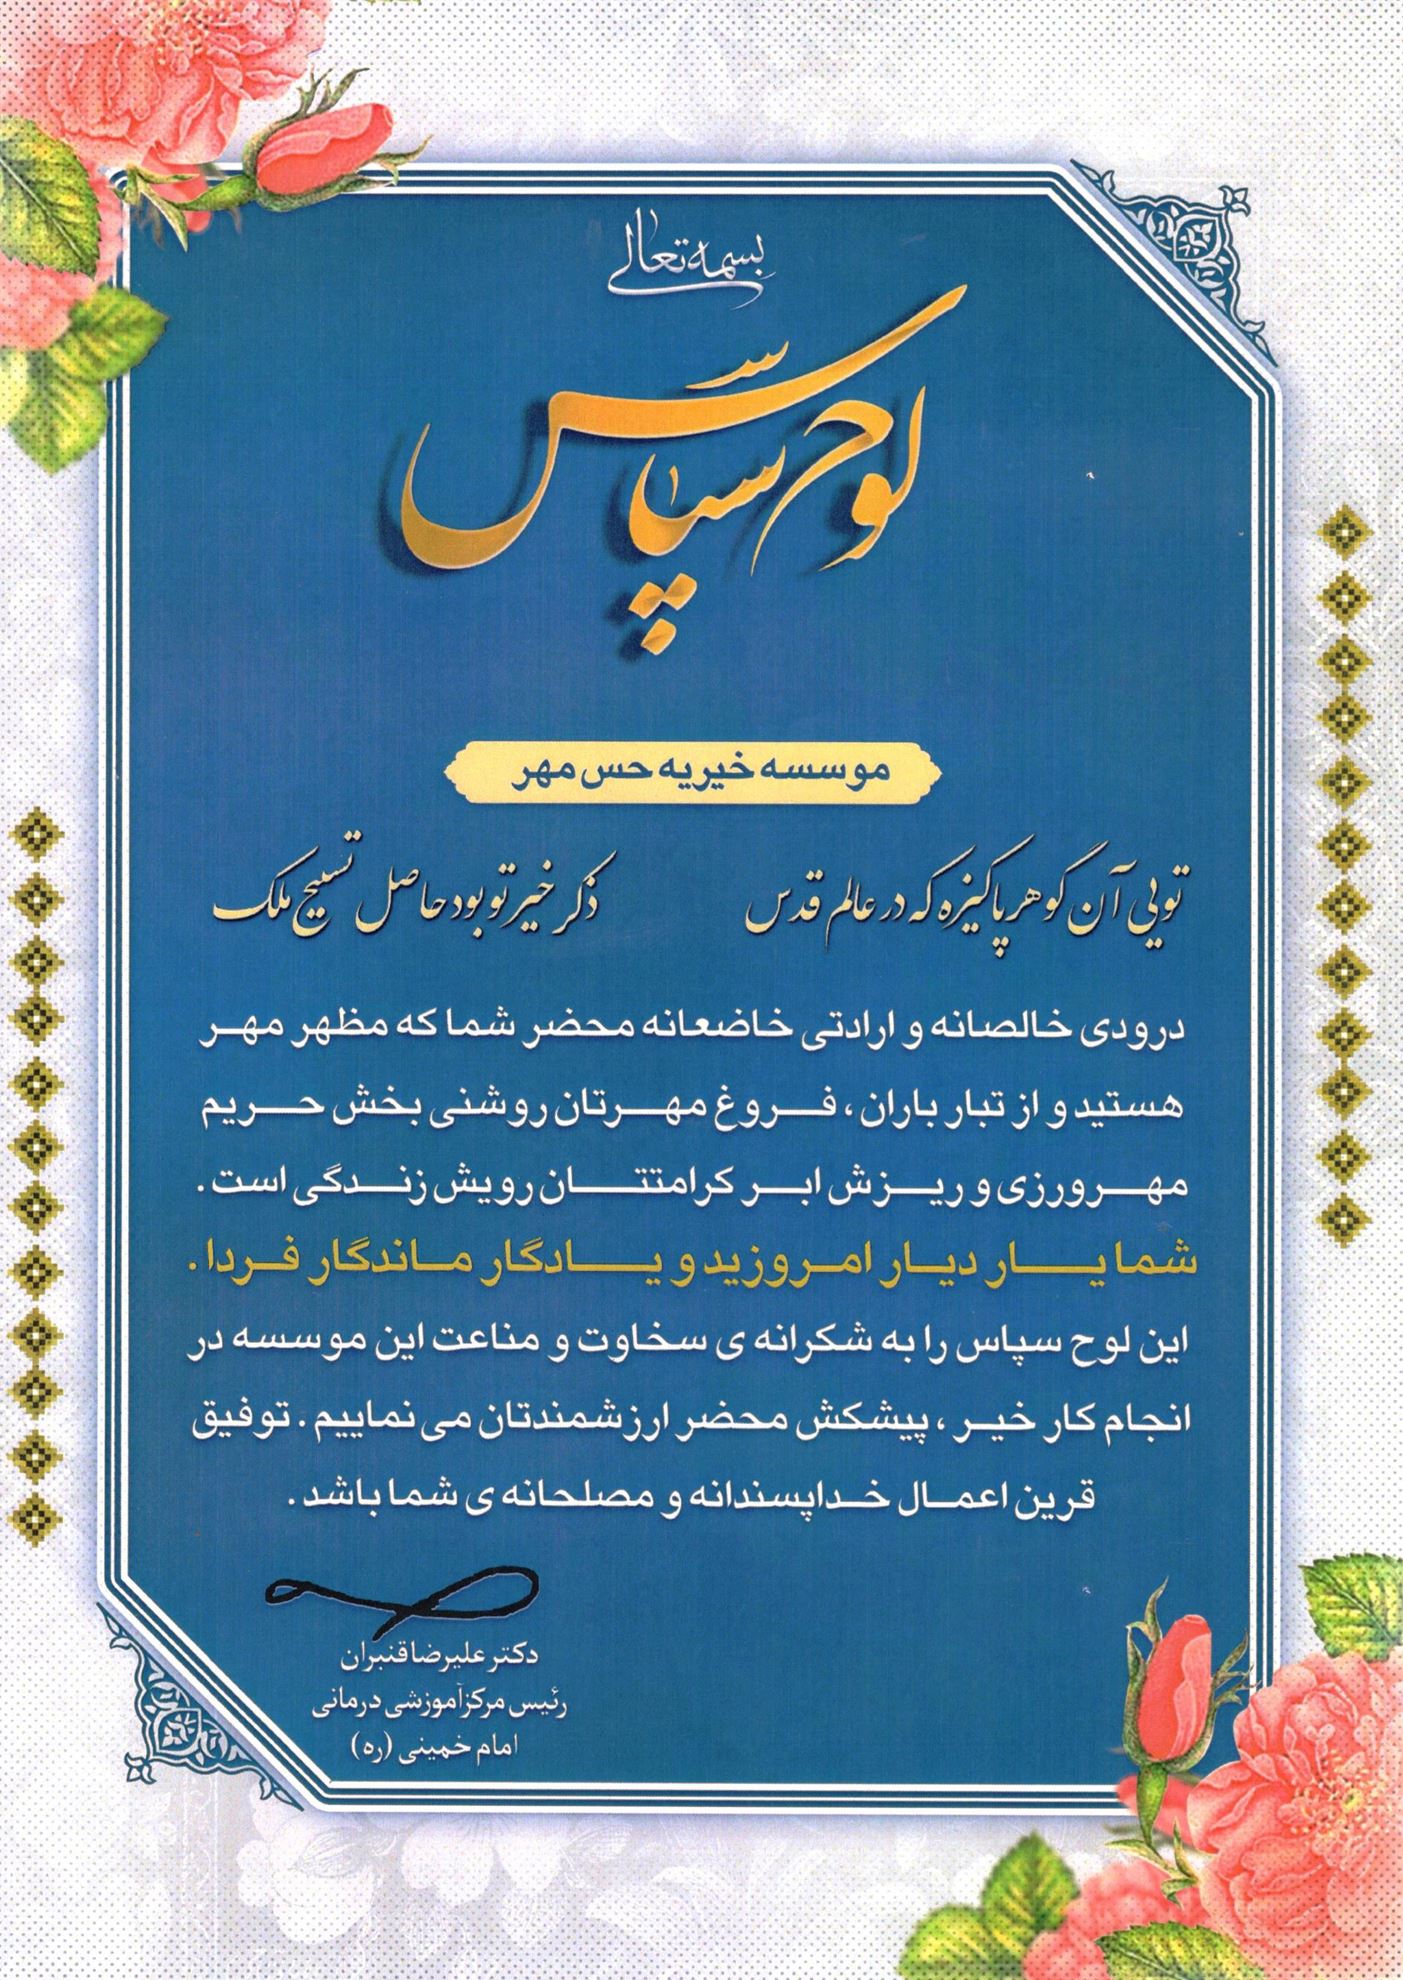 بسمه تعالی
لوح سپاس
موسسه خیریه حس مهر
تویی آن گوهر پاکیزه که در عالم قدس ذکر خیر تو بود حاصل تسبیح ملک
درودی خالصانه و ارادتی خاضعانه محضر شما که مظهر مهر
هستید و از تبار باران ، فروغ مهرتان روشنی بخش حریم
مهرورزی و ریزش ابر کرامتتان رویش زندگی است .
شما یار دیار امروزید و یادگار ماندگار فردا .
این لوح سپاس را به شکرانه ی سخاوت و مناعت این موسسه در
انجام کار خیر ، پیشکش محضر ارزشمندتان می نماییم . توفیق
قرین اعمال خداپسندانه و مصلحانه ی شما باشد .
دکتر علیرضا قنبران
رئیس مرکز آموزشی درمانی
امام خمینی (ره)